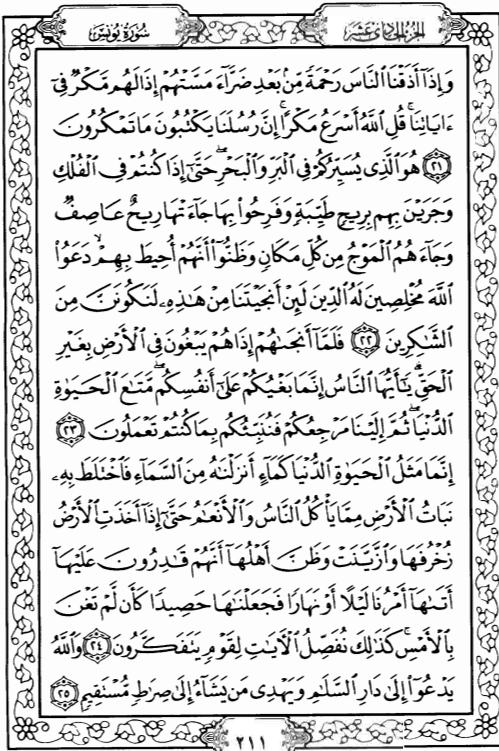 سُورَةُ يُونُسَ
الجزء الحادي عشر
وَإِذَآ أَذَقْنَا ٱلنَّاسَ رَحْمَةً مِّنۢ بَعْدِ ضَرَّآءَ مَسَّتْهُمْ إِذَا لَهُم مَّكْرٌ فِىٓ
ءَايَاتِنَا ۚ قُلِ ٱللَّهُ أَسْرَعُ مَكْرًا ۚ إِنَّ رُسُلَنَا يَكْتُبُونَ مَا تَمْكُرُونَ
٢١ هُوَ ٱلَّذِى يُسَيِّرُكُمْ فِى ٱلْبَرِّ وَٱلْبَحْرِ ۖ حَتَّىٰٓ إِذَا كُنتُمْ فِى ٱلْفُلْكِ
وَجَرَيْنَ بِهِم بِرِيحٍ طَيِّبَةٍ وَفَرِحُوا۟ بِهَا جَآءَتْهَا رِيحٌ عَاصِفٌ
وَجَآءَهُمُ ٱلْمَوْجُ مِن كُلِّ مَكَانٍ وَظَنُّوٓا۟ أَنَّهُمْ أُحِيطَ بِهِمْ ۙ دَعَوُا۟
ٱللَّهَ مُخْلِصِينَ لَهُ ٱلدِّينَ لَئِنْ أَنجَيْتَنَا مِنْ هَٰذِهِۦ لَنَكُونَنَّ مِنَ
ٱلشَّٰكِرِينَ ٢٢ فَلَمَّآ أَنجَىٰهُمْ إِذَا هُمْ يَبْغُونَ فِى ٱلْأَرْضِ بِغَيْرِ
ٱلْحَقِّ ۗ يَٰٓأَيُّهَا ٱلنَّاسُ إِنَّمَا بَغْيُكُمْ عَلَىٰٓ أَنفُسِكُم ۖ مَّتَٰعَ ٱلْحَيَوٰةِ
ٱلدُّنْيَا ۖ ثُمَّ إِلَيْنَا مَرْجِعُكُمْ فَنُنَبِّئُكُم بِمَا كُنتُمْ تَعْمَلُونَ ٢٣
إِنَّمَا مَثَلُ ٱلْحَيَوٰةِ ٱلدُّنْيَا كَمَآءٍ أَنزَلْنَٰهُ مِنَ ٱلسَّمَآءِ فَٱخْتَلَطَ بِهِۦ
نَبَاتُ ٱلْأَرْضِ مِمَّا يَأْكُلُ ٱلنَّاسُ وَٱلْأَنْعَٰمُ حَتَّىٰٓ إِذَآ أَخَذَتِ ٱلْأَرْضُ
زُخْرُفَهَا وَٱزَّيَّنَتْ وَظَنَّ أَهْلُهَآ أَنَّهُمْ قَٰدِرُونَ عَلَيْهَآ
أَتَىٰهَآ أَمْرُنَا لَيْلًا أَوْ نَهَارًا فَجَعَلْنَٰهَا حَصِيدًا كَأَن لَّمْ تَغْنَ
بِٱلْأَمْسِ ۚ كَذَٰلِكَ نُفَصِّلُ ٱلْءَايَٰتِ لِقَوْمٍ يَتَفَكَّرُونَ ٢٤ وَٱللَّهُ
يَدْعُوٓا۟ إِلَىٰ دَارِ ٱلسَّلَٰمِ وَيَهْدِى مَن يَشَآءُ إِلَىٰ صِرَٰطٍ مُّسْتَقِيمٍ ٢٥
٢١١